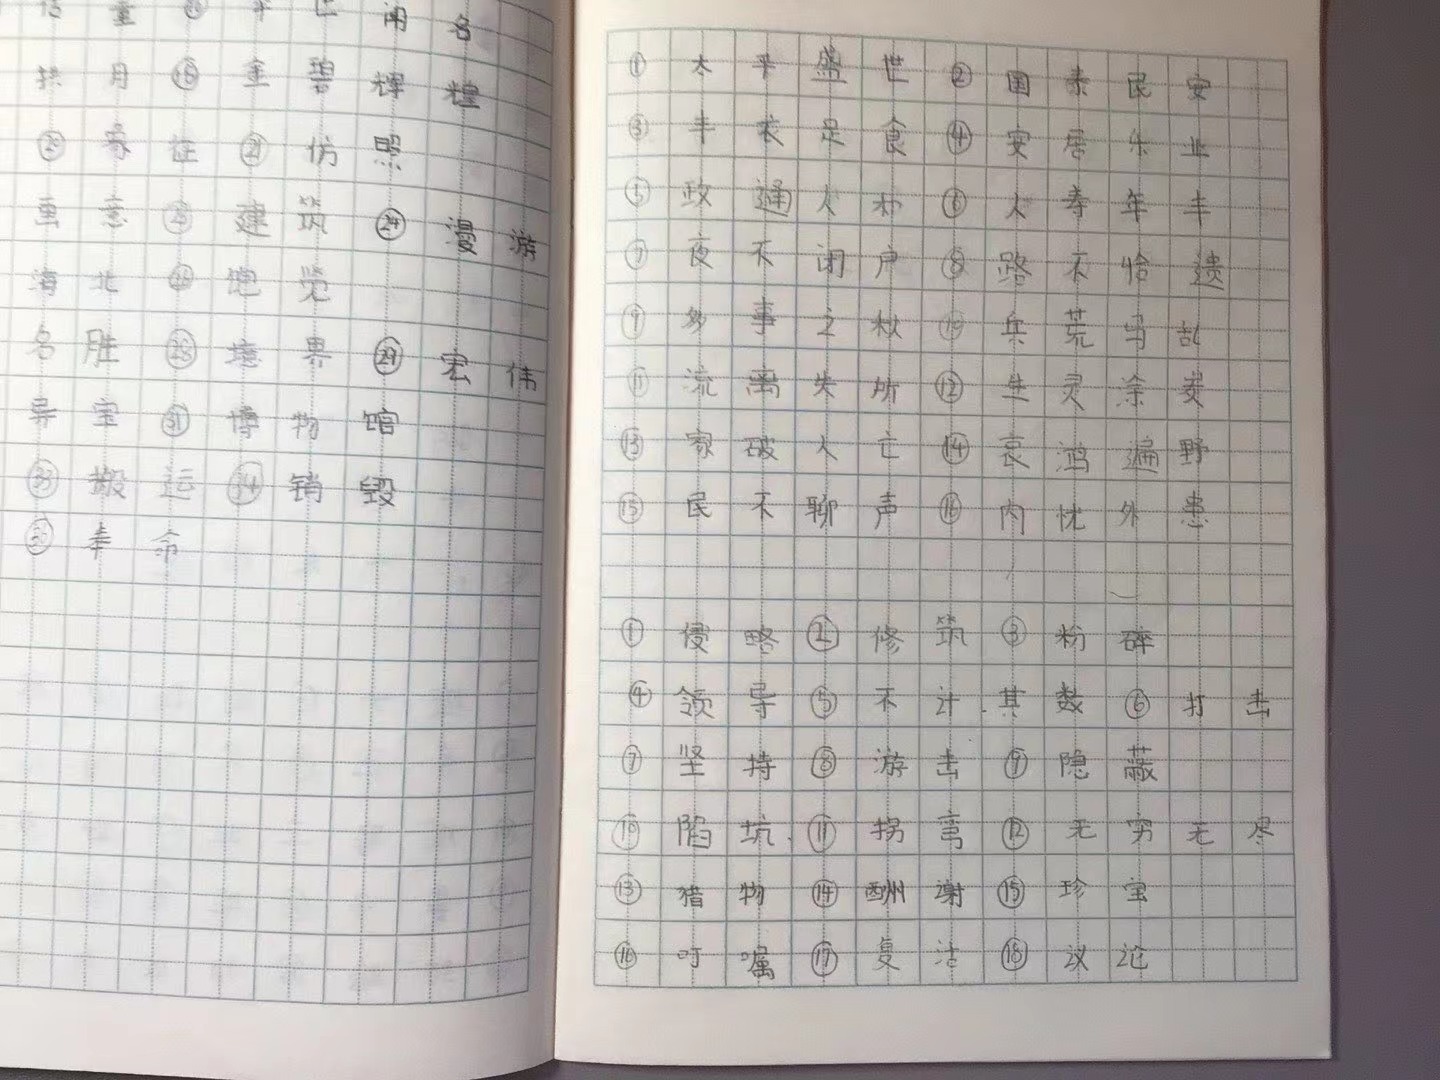 闻名
拱月⑱金碧辉煌
⑳象征㉑仿照
建筑㉔漫游
览
名胜㉘境界㉙宏伟
异宝㉛博物馆
㉝搬运㉞销毁
奉命
①太平盛世②国泰民安
③丰衣足食④安居乐业
⑤政通人和⑥人寿年丰
⑦夜不闭户⑧路不恰遗
⑨多事之秋⑩兵荒马乱
⑪流离失所⑫生灵涂炭
⑬家破人亡⑭哀鸿遍野
⑮民不聊声⑯内忧外患
①侵略②修筑③粉碎
④领导⑤不计其数⑥打击
⑦坚持⑧游击⑨隐蔽
⑩陷坑⑪拐弯⑫无穷无尽
⑬猎物⑭酬谢⑮珍宝
⑯叮嘱⑰复活⑱议论